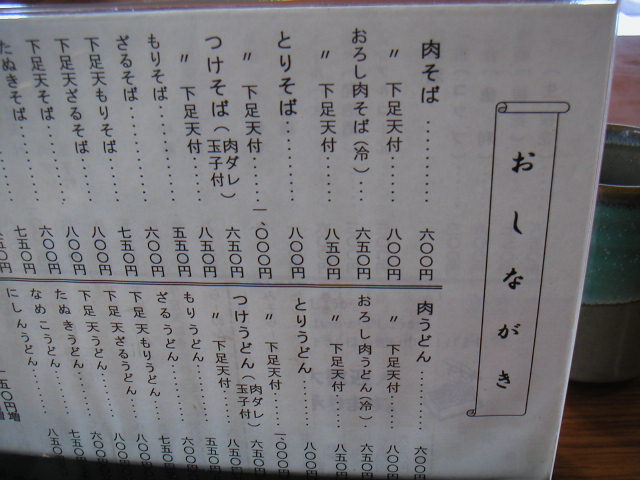 おしながき
肉そば………六〇〇円
〃 下足天付……八〇〇円
おろし肉そば(冷)……六五〇円
〃 下足天付……八五〇円
とりそば………八〇〇円
〃 下足天付……一、〇〇〇円
つけそば(肉ダレ)(玉子付)六五〇円
〃 下足天付……八五〇円
もりそば………五五〇円
ざるそば………六〇〇円
下足天もりそば……七五〇円
下足天ざるそば……八〇〇円
下足天そば……八〇〇円
たぬきそば……六〇〇円
七五〇円
五〇円
肉うどん………六〇〇
〃 下足天付……八〇〇
おろし肉うどん(冷)……六五〇
〃 下足天付……八五〇
とりうどん………八〇〇
〃 下足天付……一、〇〇〇
つけうどん(肉ダレ)(玉子付)六五〇
〃 下足天付……八五〇
もりうどん………五五〇
ざるうどん………六〇〇
下足天もりうどん……七五〇
下足天ざるうどん……八〇〇
下足天うどん……八〇〇
たぬきうどん……六〇〇
なめこうどん……七五〇
にしんうどん……八五〇
一五〇円増